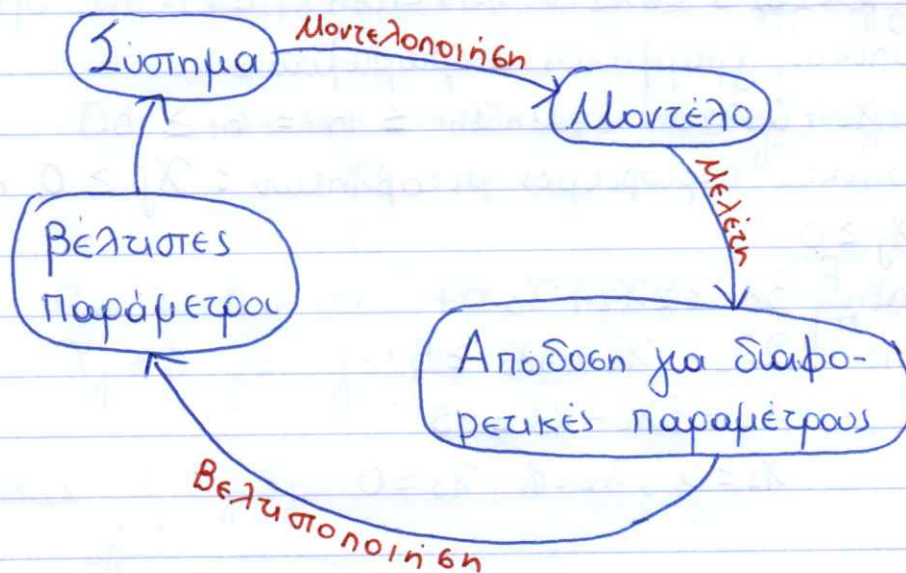 Σύστημα
Μοντελοποιήση
Μοντέλο
Μελέτη
Αποδοση για διαφο-
ρετικές παραμέτρους
Βελτιστοποιήση
Βέλτιστες
παράμετροι